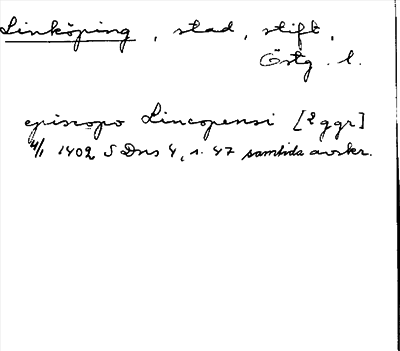 Linköping, stad, stift,
Östg. l.
episcopo Lincopensi [2 ggr]
4/1 1402 SDns 4, s. 47 samtida avskr.